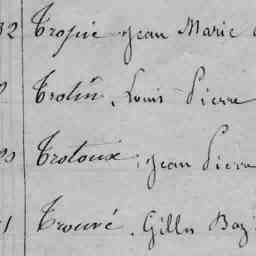 32 Tropie Jean Marie
Trotin, Louis Pierre
Trotoux, Jean Pierre
Trouvé, Gilles Baz